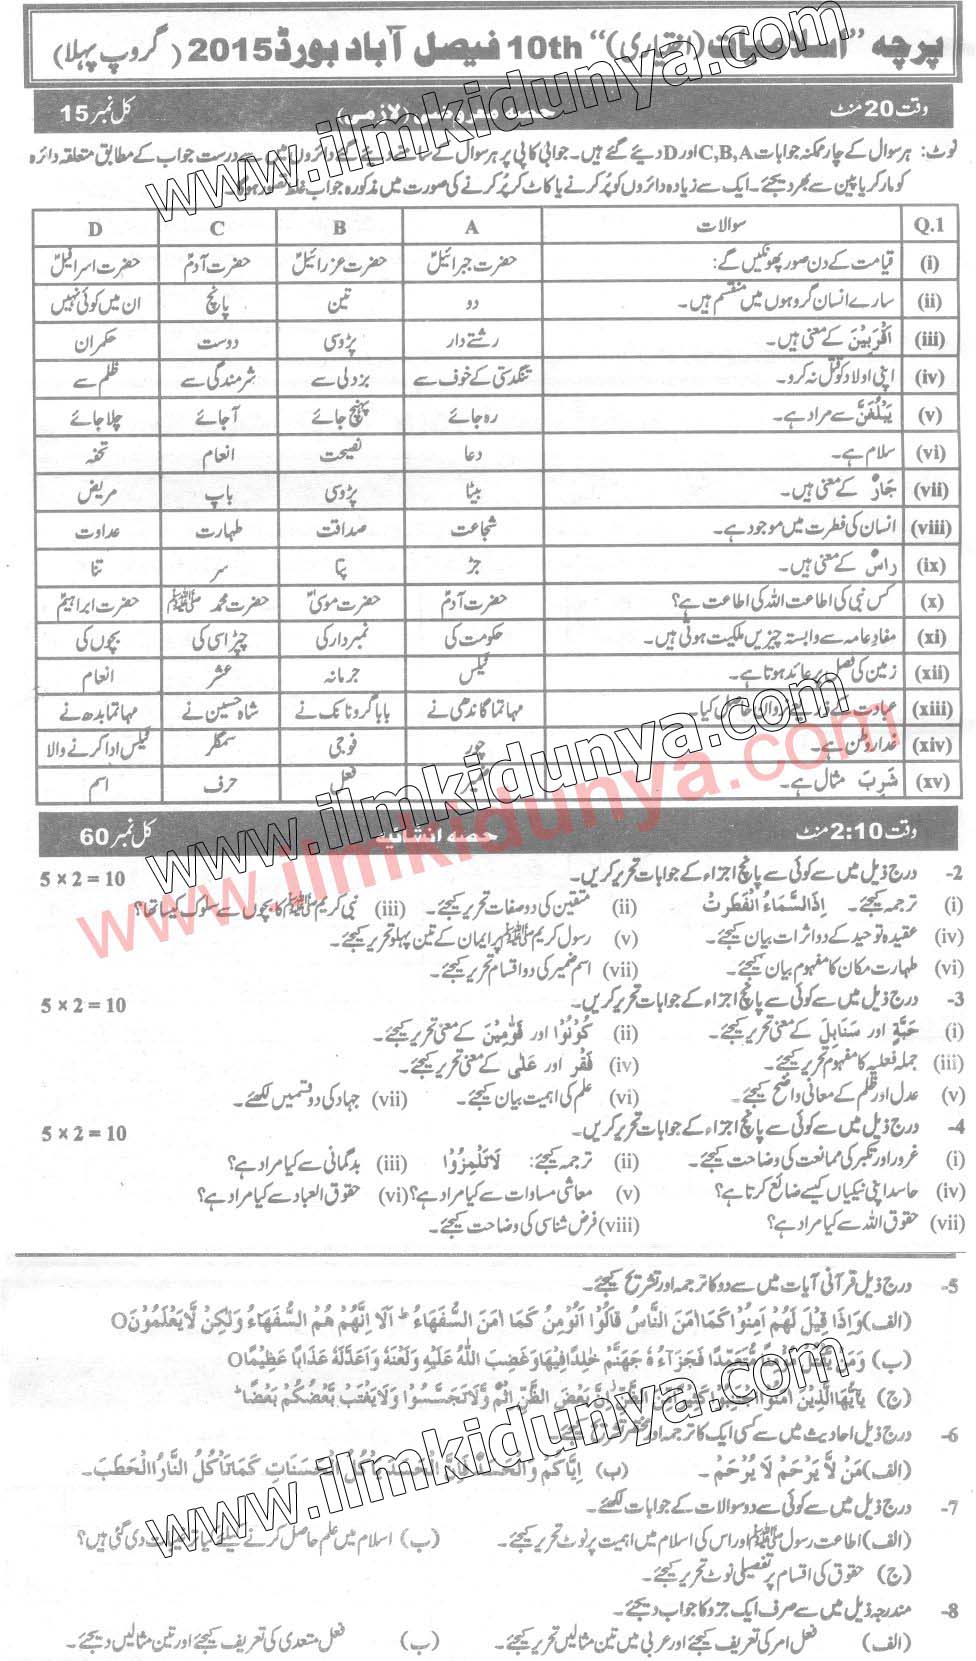 پرچہ "اسلامیات (اختیاری)" 10th فیصل آباد بورڈ 2015 (گروپ پہلا)
وقت 20 منٹ حصہ معروضی (لازمی) کل نمبر 15
نوٹ: ہر سوال کے چار ممکنہ جوابات C,B,A اور D دیئے گئے ہیں۔ جوابی کاپی پر ہر سوال کے سامنے دیئے گئے دائروں میں سے درست جواب کے مطابق متعلقہ دائرہ
کو مارکر یا پین سے بھر دیجئے۔ ایک سے زیادہ دائروں کو پُر کرنے یا کاٹ کر پُر کرنے کی صورت میں مذکورہ جواب غلط تصور ہوگا۔
Q.1 سوالات A B C D
(i) قیامت کے دن صور پھونکیں گے: حضرت جبرائیلؑ حضرت عزرائیلؑ حضرت آدمؑ حضرت اسرافیلؑ
(ii) سارے انسان گروہوں میں منقسم ہیں۔ دو تین پانچ ان میں کوئی نہیں
(iii) اَقْرَبِیْنَ کے معنی ہیں۔ رشتے دار پڑوسی دوست حکمران
(iv) اپنی اولاد کو قتل نہ کرو۔ تنگدستی کے خوف سے بزدلی سے شرمندگی سے ظلم سے
(v) یَبْلُغَنَّ سے مراد ہے۔ رہ جائے پہنچ جائے آ جائے چلا جائے
(vi) سلام ہے۔ دعا نصیحت انعام تحفہ
(vii) جَارٌ کے معنی ہیں۔ بیٹا پڑوسی باپ مریض
(viii) انسان کی فطرت میں موجود ہے۔ شجاعت صداقت طہارت عداوت
(ix) رَاسٌ کے معنی ہیں۔ جڑ پتا سر تنا
(x) کس نبی کی اطاعت اللہ کی اطاعت ہے؟ حضرت آدمؑ حضرت موسیٰؑ حضرت محمد ﷺ حضرت ابراہیمؑ
(xi) مفادِ عامہ سے وابستہ چیزیں ملکیت ہوتی ہیں۔ حکومت کی نمبردار کی چپڑاسی کی بچوں کی
(xii) زمین کی فصل پر عائد ہوتا ہے۔ ٹیکس جرمانہ عشر انعام
(xiii) عبادت کے ذریعے نروان حاصل کیا۔ مہاتما گاندھی نے بابا گرو نانک نے شاہ حسین نے مہاتما بدھ نے
(xiv) غدارِ وطن ہے۔ چور فوجی سمگلر ٹیکس ادا کرنے والا
(xv) شَرِبَ مثال ہے۔ ضمیر فعل حرف اسم
وقت 2:10 منٹ حصہ انشائیہ کل نمبر 60
2- درج ذیل میں سے کوئی سے پانچ اجزاء کے جوابات تحریر کریں۔ 5 × 2 = 10
(i) ترجمہ کیجئے۔ اِذَالسَّمَاءُ انْفَطَرَتْ (ii) متقین کی دو صفات تحریر کیجئے۔ (iii) نبی کریم ﷺ کا بچوں سے سلوک کیسا تھا؟
(iv) عقیدہ توحید کے دو اثرات بیان کیجئے۔ (v) رسول کریم ﷺ پر ایمان کے تین پہلو تحریر کیجئے۔
(vi) طہارت مکان کا مفہوم بیان کیجئے۔ (vii) اسم ضمیر کی دو اقسام تحریر کیجئے۔
3- درج ذیل میں سے کوئی سے پانچ اجزاء کے جوابات تحریر کریں۔ 5 × 2 = 10
(i) حَبَّةٍ اور سَنَابِلَ کے معنی تحریر کیجئے۔ (ii) کُوْنُوْا اور قَوّٰمِیْنَ کے معنی تحریر کیجئے۔
(iii) جملہ فعلیہ کا مفہوم تحریر کیجئے۔ (iv) فَقْر اور عَلٰی کے معنی تحریر کیجئے۔
(v) عدل اور ظلم کے معانی واضح کیجئے۔ (vi) علم کی اہمیت بیان کیجئے۔ (vii) جہاد کی دو قسمیں لکھئے۔
4- درج ذیل میں سے کوئی سے پانچ اجزاء کے جوابات تحریر کریں۔ 5 × 2 = 10
(i) غرور اور تکبر کی ممانعت کی وضاحت کیجئے۔ (ii) ترجمہ کیجئے: لَا تَلْمِزُوْا (iii) بدگمانی سے کیا مراد ہے؟
(iv) حاسد اپنی نیکیاں کیسے ضائع کرتا ہے؟ (v) معاشی مساوات سے کیا مراد ہے؟ (vi) حقوق العباد سے کیا مراد ہے؟
(vii) حقوق اللہ سے کیا مراد ہے؟ (viii) فرض شناسی کی وضاحت کیجئے۔
5- درج ذیل قرآنی آیات میں سے دو کا ترجمہ اور تشریح کیجئے۔
(الف) وَاِذَا قِیْلَ لَهُمْ اٰمِنُوْا کَمَا اٰمَنَ النَّاسُ قَالُوْا اَنُؤْمِنُ کَمَا اٰمَنَ السُّفَهَاءُ ط اَلَا اِنَّهُمْ هُمُ السُّفَهَاءُ وَلٰکِنْ لَّا یَعْلَمُوْنَ O
(ب) وَمَنْ یَّقْتُلْ مُؤْمِنًا مُّتَعَمِّدًا فَجَزَآؤُهٗ جَهَنَّمُ خٰلِدًا فِیْهَا وَغَضِبَ اللّٰهُ عَلَیْهِ وَلَعَنَهٗ وَاَعَدَّلَهٗ عَذَابًا عَظِیْمًا O
(ج) یٰۤاَیُّهَا الَّذِیْنَ اٰمَنُوا اجْتَنِبُوْا کَثِیْرًا مِّنَ الظَّنِّ اِنَّ بَعْضَ الظَّنِّ اِثْمٌ وَّلَا تَجَسَّسُوْا وَلَا یَغْتَبْ بَّعْضُکُمْ بَعْضًا ط
6- درج ذیل احادیث میں سے کسی ایک کا ترجمہ اور مختصر تشریح کیجئے۔
(الف) مَنْ لَّا یَرْحَمْ لَا یُرْحَمْ۔ (ب) اِیَّاکُمْ وَالْحَسَدَ فَاِنَّ الْحَسَدَ یَاْکُلُ الْحَسَنَاتِ کَمَا تَاْکُلُ النَّارُ الْحَطَبَ۔
7- درج ذیل میں سے کوئی سے دو سوالات کے جوابات لکھئے۔
(الف) اطاعت رسول ﷺ اور اس کی اسلام میں اہمیت پر نوٹ تحریر کیجئے۔ (ب) اسلام میں علم حاصل کرنے کیلئے کیا ترغیبات دی گئی ہیں؟
(ج) حقوق کی اقسام پر تفصیلی نوٹ تحریر کیجئے۔
8- مندرجہ ذیل میں سے صرف ایک جزو کا جواب دیجئے۔
(الف) فعل امر کی تعریف کیجئے اور عربی میں تین مثالیں تحریر کیجئے۔ (ب) فعل متعدی کی تعریف کیجئے اور تین مثالیں دیجئے۔
www.ilmkidunya.com
www.ilmkidunya.com
www.ilmkidunya.com
www.ilmkidunya.com